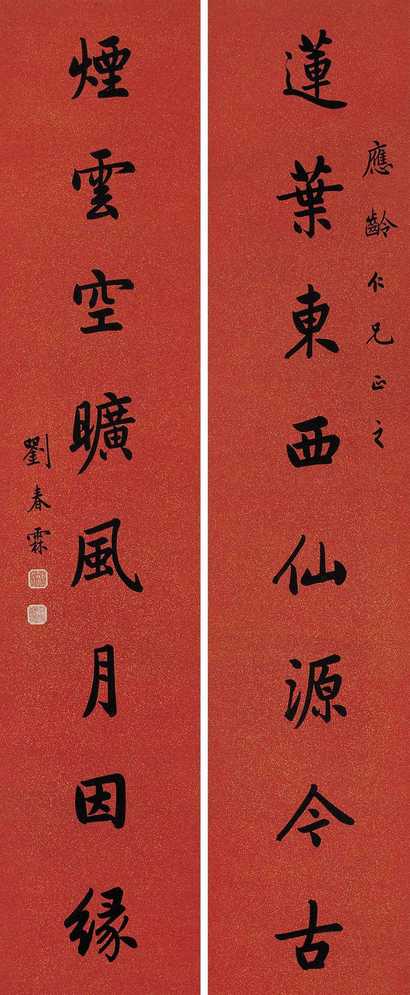 應齡仁兄正之
蓮葉東西仙源今古
煙雲空曠風月因緣
劉春霖